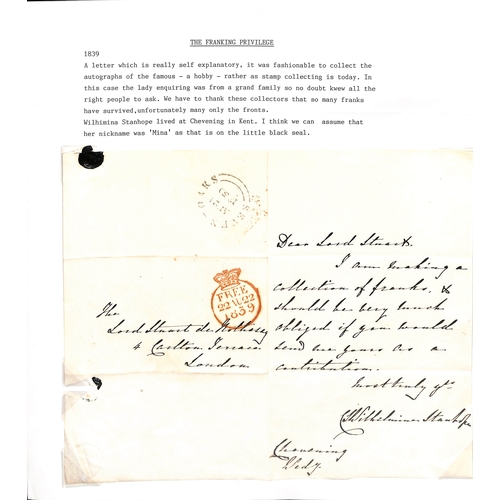 THE FRANKING PRIVILEGE
1839
A letter which is really self explanatory, it was fashionable to collect the
autographs of the famous - a hobby - rather as stamp collecting is today. In
this case the lady enquiring was from a grand family so no doubt kwew all the
right people to ask. We have to thank these collectors that so many franks
have survived,unfortunately many only the fronts.
Wilhimina Stanhope lived at Chevening in Kent. I think we can assume that
her nickname was 'Mina' as that is on the little black seal.
SEVEN-OAKS
Dear Lord Stuart.
I am making a
collection of franks, &
should be very much
obliged if you would
send me yours as a
contribution.
Most truly yrs
CWilhelmina Stanhope
Chevening
FREE
22 22
1839
The
Lord Stuart de Rothesay
4 Carlton Terrace
London